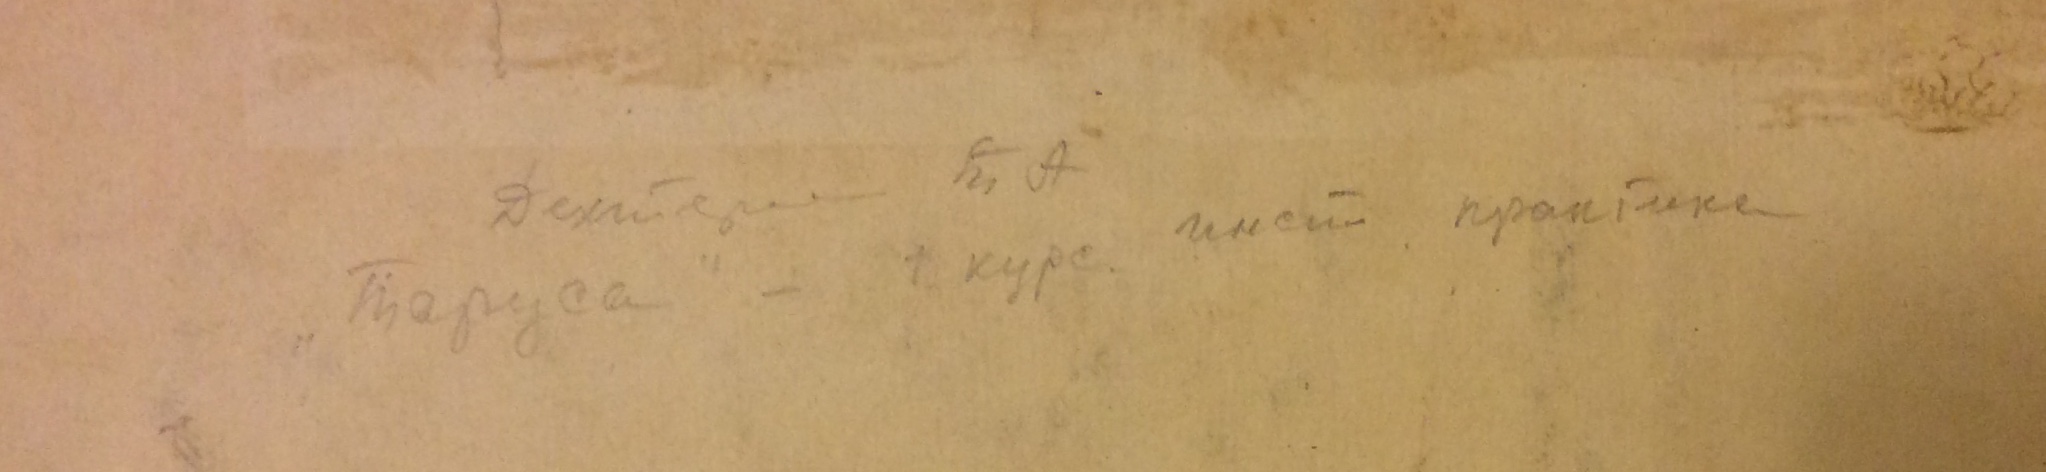 Дехтерев Б А
„Таруса" - 1 курс. инст. практика